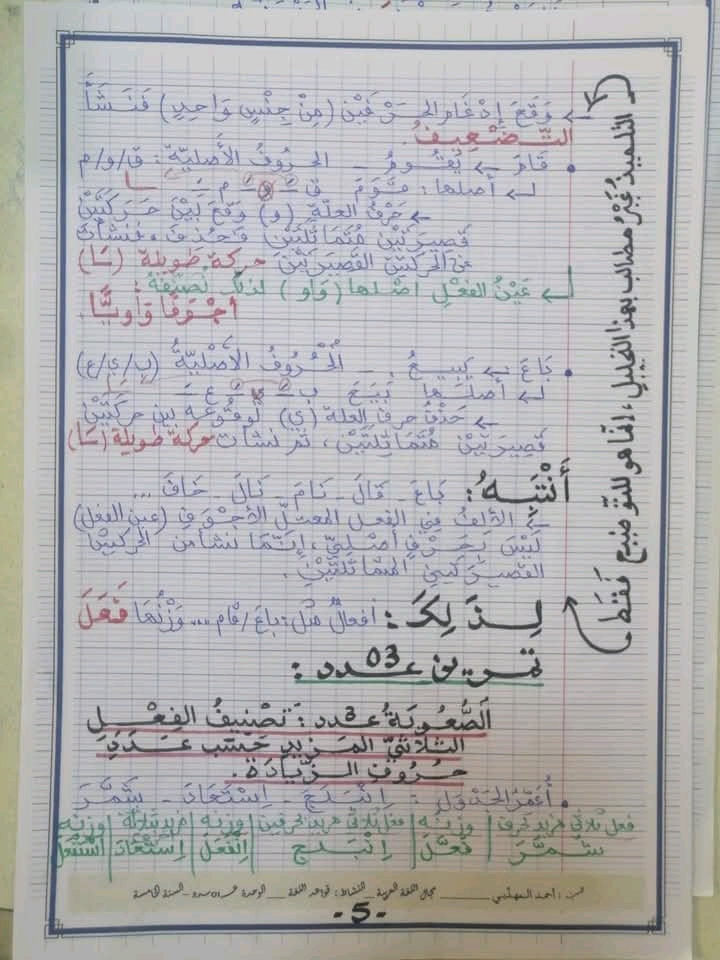 ← وَقَعَ إِدْغَام الحَرْفَيْن (مِنْ جِنْسٍ وَاحِدٍ) فَنَشَأَ
التَّضْعِيفُ.
• قَامَ ← يَقُومُ _ الحُرُوفُ الأَصْلِيَّة: ق/و/م
↳ أصلها: قَوَمَ ق و م
← حَرْفُ العلّةِ (و) وَقَعَ بَيْنَ حَرَكَتَيْنِ
قَصِيرَتَيْنِ مُتَمَاثِلَتَيْنِ فَحُذِفَ، فنشأت
عن الحركتين القصيرتين حركة طويلة (ـَـا)
↳ عَيْنُ الفعْلِ أصْلها (وَاو) لذلك نُصَنِّفُهُ:
أَجْوَفًا وَاوِيًّا.
• بَاعَ ← يَبِيعُ. _ الْحُرُوفُ الأَصْلِيَّةُ (ب/ي/ع)
↳ أصلها بَيَعَ ب ي ع
← حَذْفُ حرف العلة (ي) لوقُوعه بين حركتَيْن
قَصِيرَتَيْن مُتَمَاثِلَتَيْنِ، ثم نشأت حركة طويلة (ـَـا)
أَنْتَبِهُ: بَاعَ _ قَالَ _ نَامَ _ نَالَ _ خَافَ ...
← الألفُ في الفعل المعتلّ الأجوف (عين الفعل)
لَيْسَ بحَرْفٍ أصْلِيّ، إنَّمَا نشأ من الحركتين
القصيرتين المتماثلتَيْن.
لِذَلِكَ: أفعالٌ مثْل: باعَ/قام... وَزْنُهَا فَعَلَ
تمرين عدد 03:
الصُّعُوبَةُ عدد 3: تَصْنِيفُ الفِعْل
الثلاثيّ المَزِيدِ حَسَب عَدَدِ
حُرُوفِ الزِّيَادَةِ.
• أُعَمِّرُ الجَدْوَل: اِنْبَلَجَ _ اِسْتَعَادَ _ شَمَّرَ
فعل ثلاثي مزيد بحرف | وزنه | فعل ثلاثي مزيد بحرفين | وزنه | مزيد بثلاثة | وزنه
شَمَّرَ | فَعَّلَ | اِنْبَلَجَ | اِنْفَعَلَ | اِسْتَعَادَ | اسْتَفْعَلَ
أحمد _ مجال اللغة العربية _ النشاط: قواعد اللغة _ الوحدة _ السنة الخامسة
-5-
التلميذ غَيْرُ مطالب بهذا التحليل، إنما هو للتوضيح فَقَط